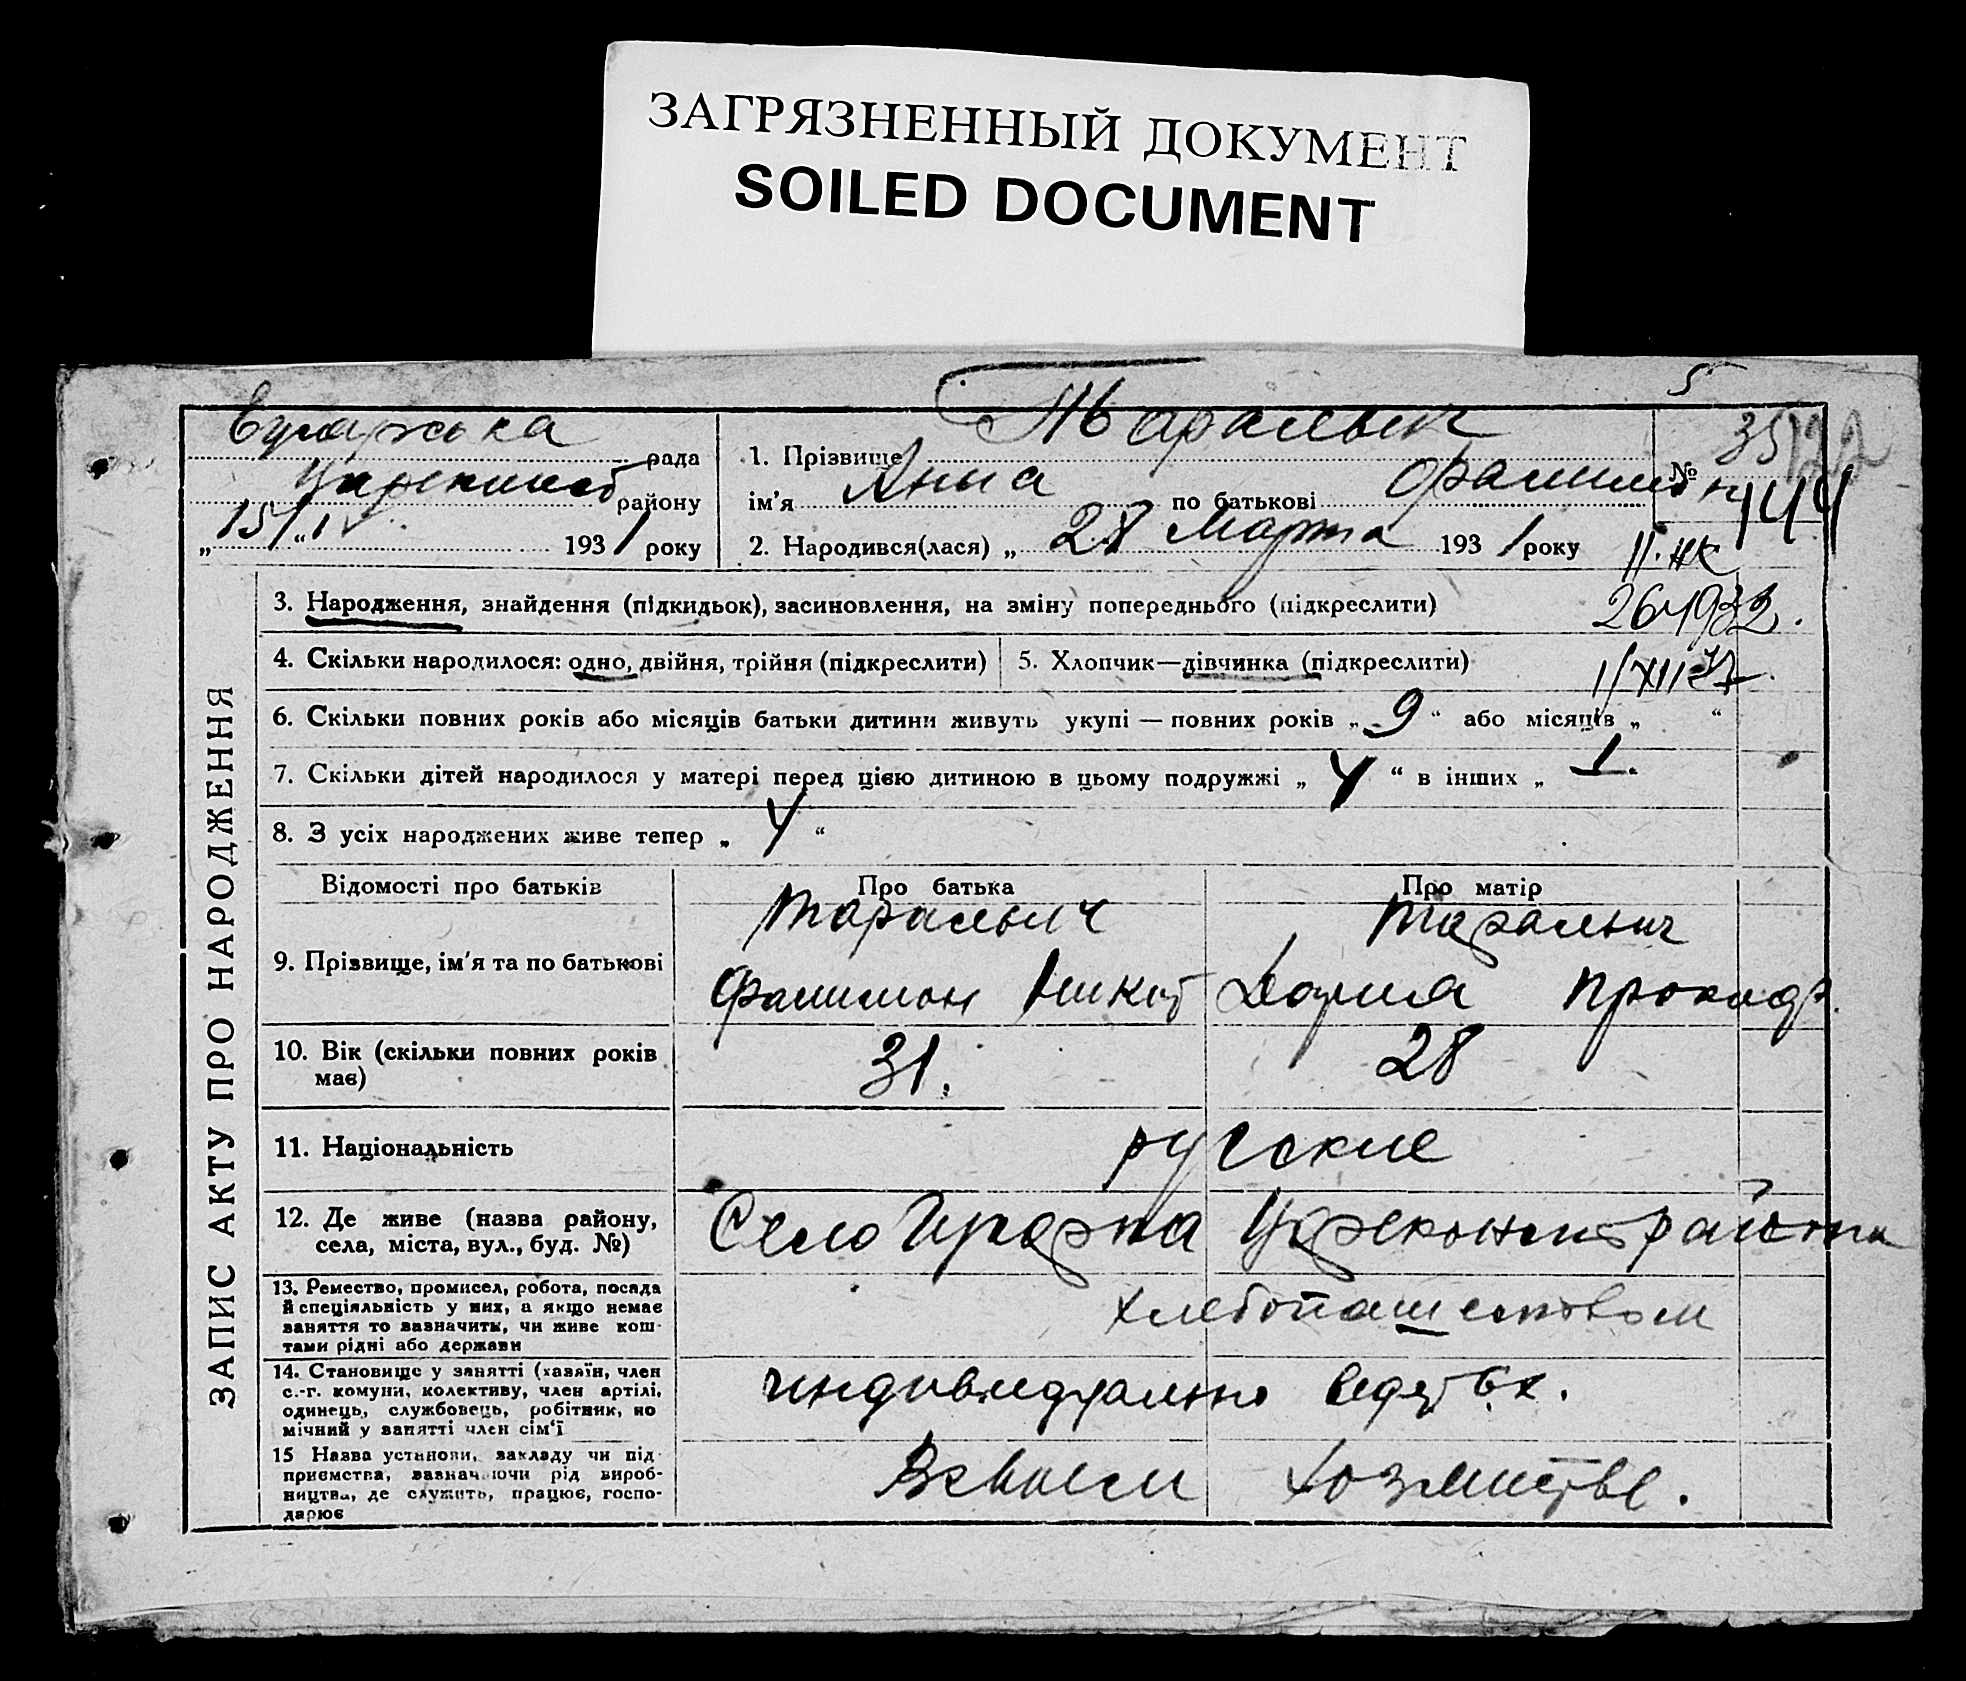 ЗАГРЯЗНЕННЫЙ ДОКУМЕНТ
SOILED DOCUMENT
5
рада
району
„15/“ IV 1931 року
1. Прізвище
ім’я Анна по батькові
2. Народився(лася) „28 Марта 1931 року
№
35
144
II. НК
ЗАПИС АКТУ ПРО НАРОДЖЕННЯ
3. Народження, знайдення (підкидьок), засиновлення, на зміну попереднього (підкреслити)
4. Скільки народилося: одно, двійня, трійня (підкреслити)
5. Хлопчик—дівчинка (підкреслити)
6. Скільки повних років або місяців батьки дитини живуть укупі — повних років „9“ або місяців „ “
7. Скільки дітей народилося у матері перед цією дитиною в цьому подружжі „4“ в інших „1.
8. З усіх народжених живе тепер „4“
Відомості про батьків
Про батька
Про матір
9. Прізвище, ім’я та по батькові
Филимон
Дария
10. Вік (скільки повних років
має)
31.
28
11. Національність
русские
12. Де живе (назва району,
села, міста, вул., буд. №)
Село района
13. Ремество, промисел, робота, посада
й спеціяльність у них, а якщо немає
заняття то зазначить, чи живе кош-
тами рідні або держави
хлебопашеством
14. Становище у занятті (хазяїн, член
с.-г. комуни, колективу, член артілі,
одинець, службовець, робітник, по
мічний у занятті член сім‘ї
индивидуально ведут с.х.
15 Назва установи, закладу чи під-
приємства, зазначаючи рід вироб-
ництва, де служить, працює, госпо-
дарює
В своем хозяйстве.